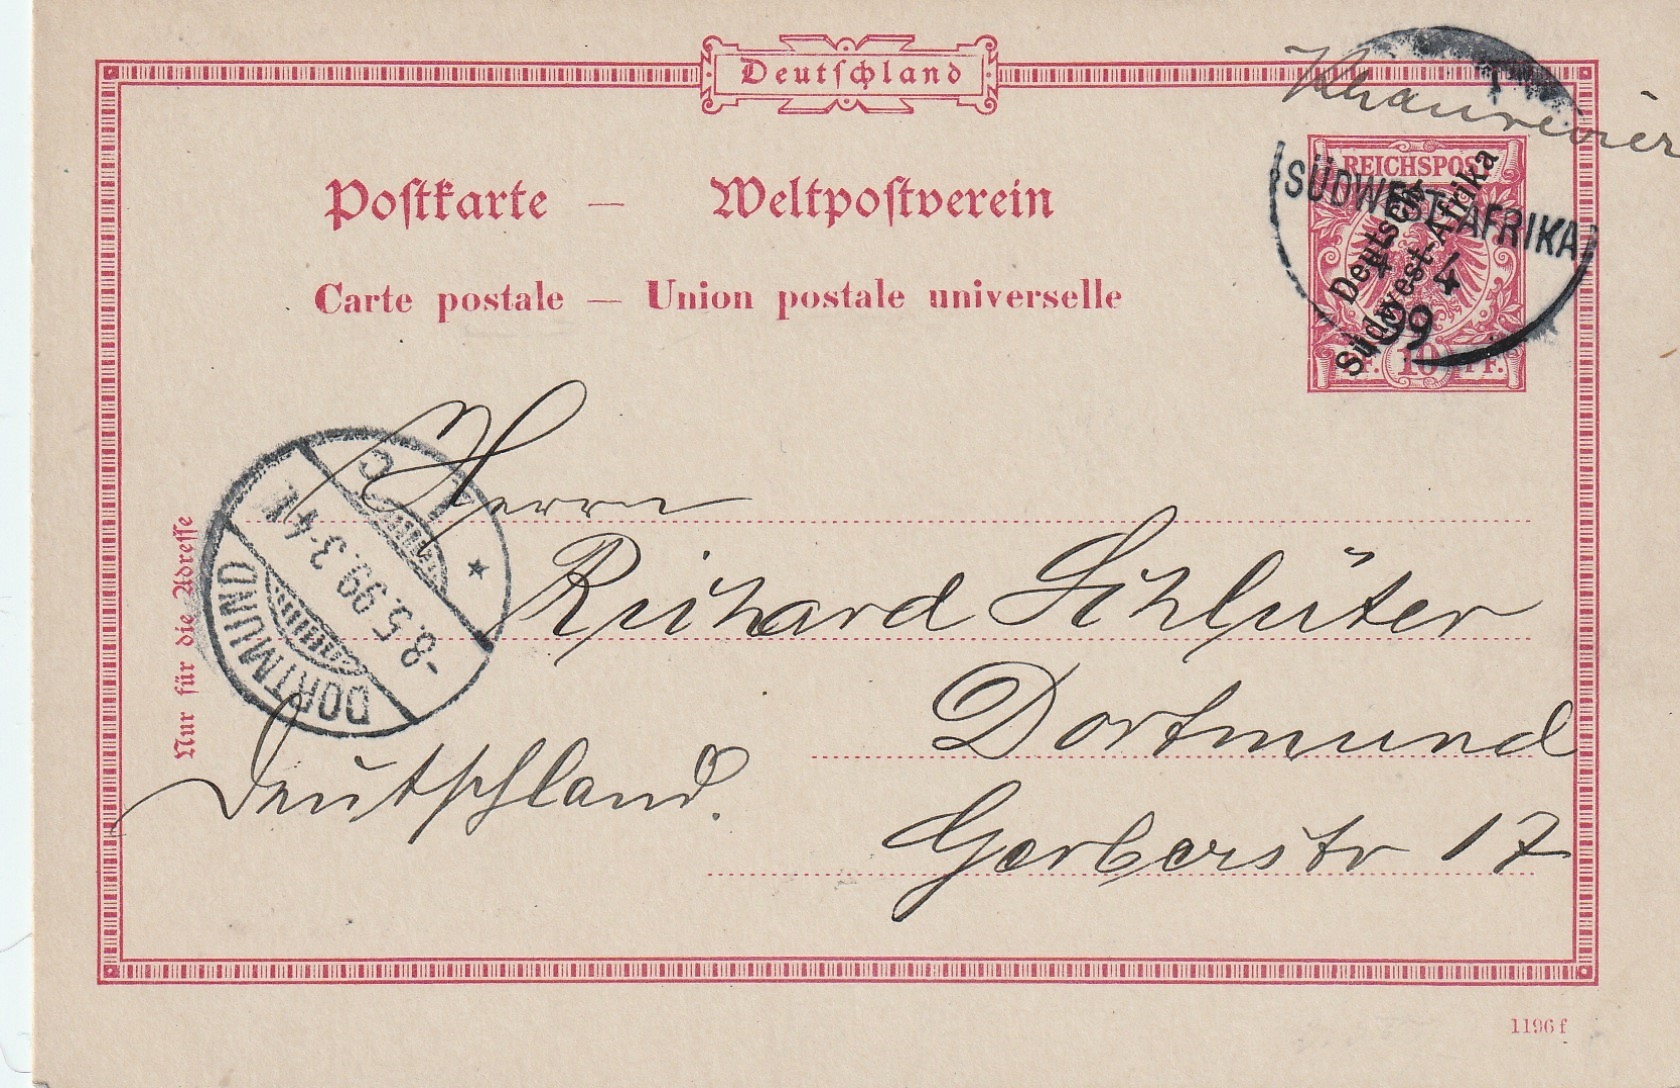 Deutschland
Khanrevier
Postkarte — Weltpostverein
Carte postale — Union postale universelle
REICHSPOST
Deutsch-
Südwest-Afrika
10 PF.
SÜDWEST-AFRIKA
4 4
99
DORTMUND
-8.5.99.3-4N.
1 C
*
Nur für die Adresse
Herrn
Richard Schlüter
Dortmund
Deutschland.
Gerberstr 17
1196 f